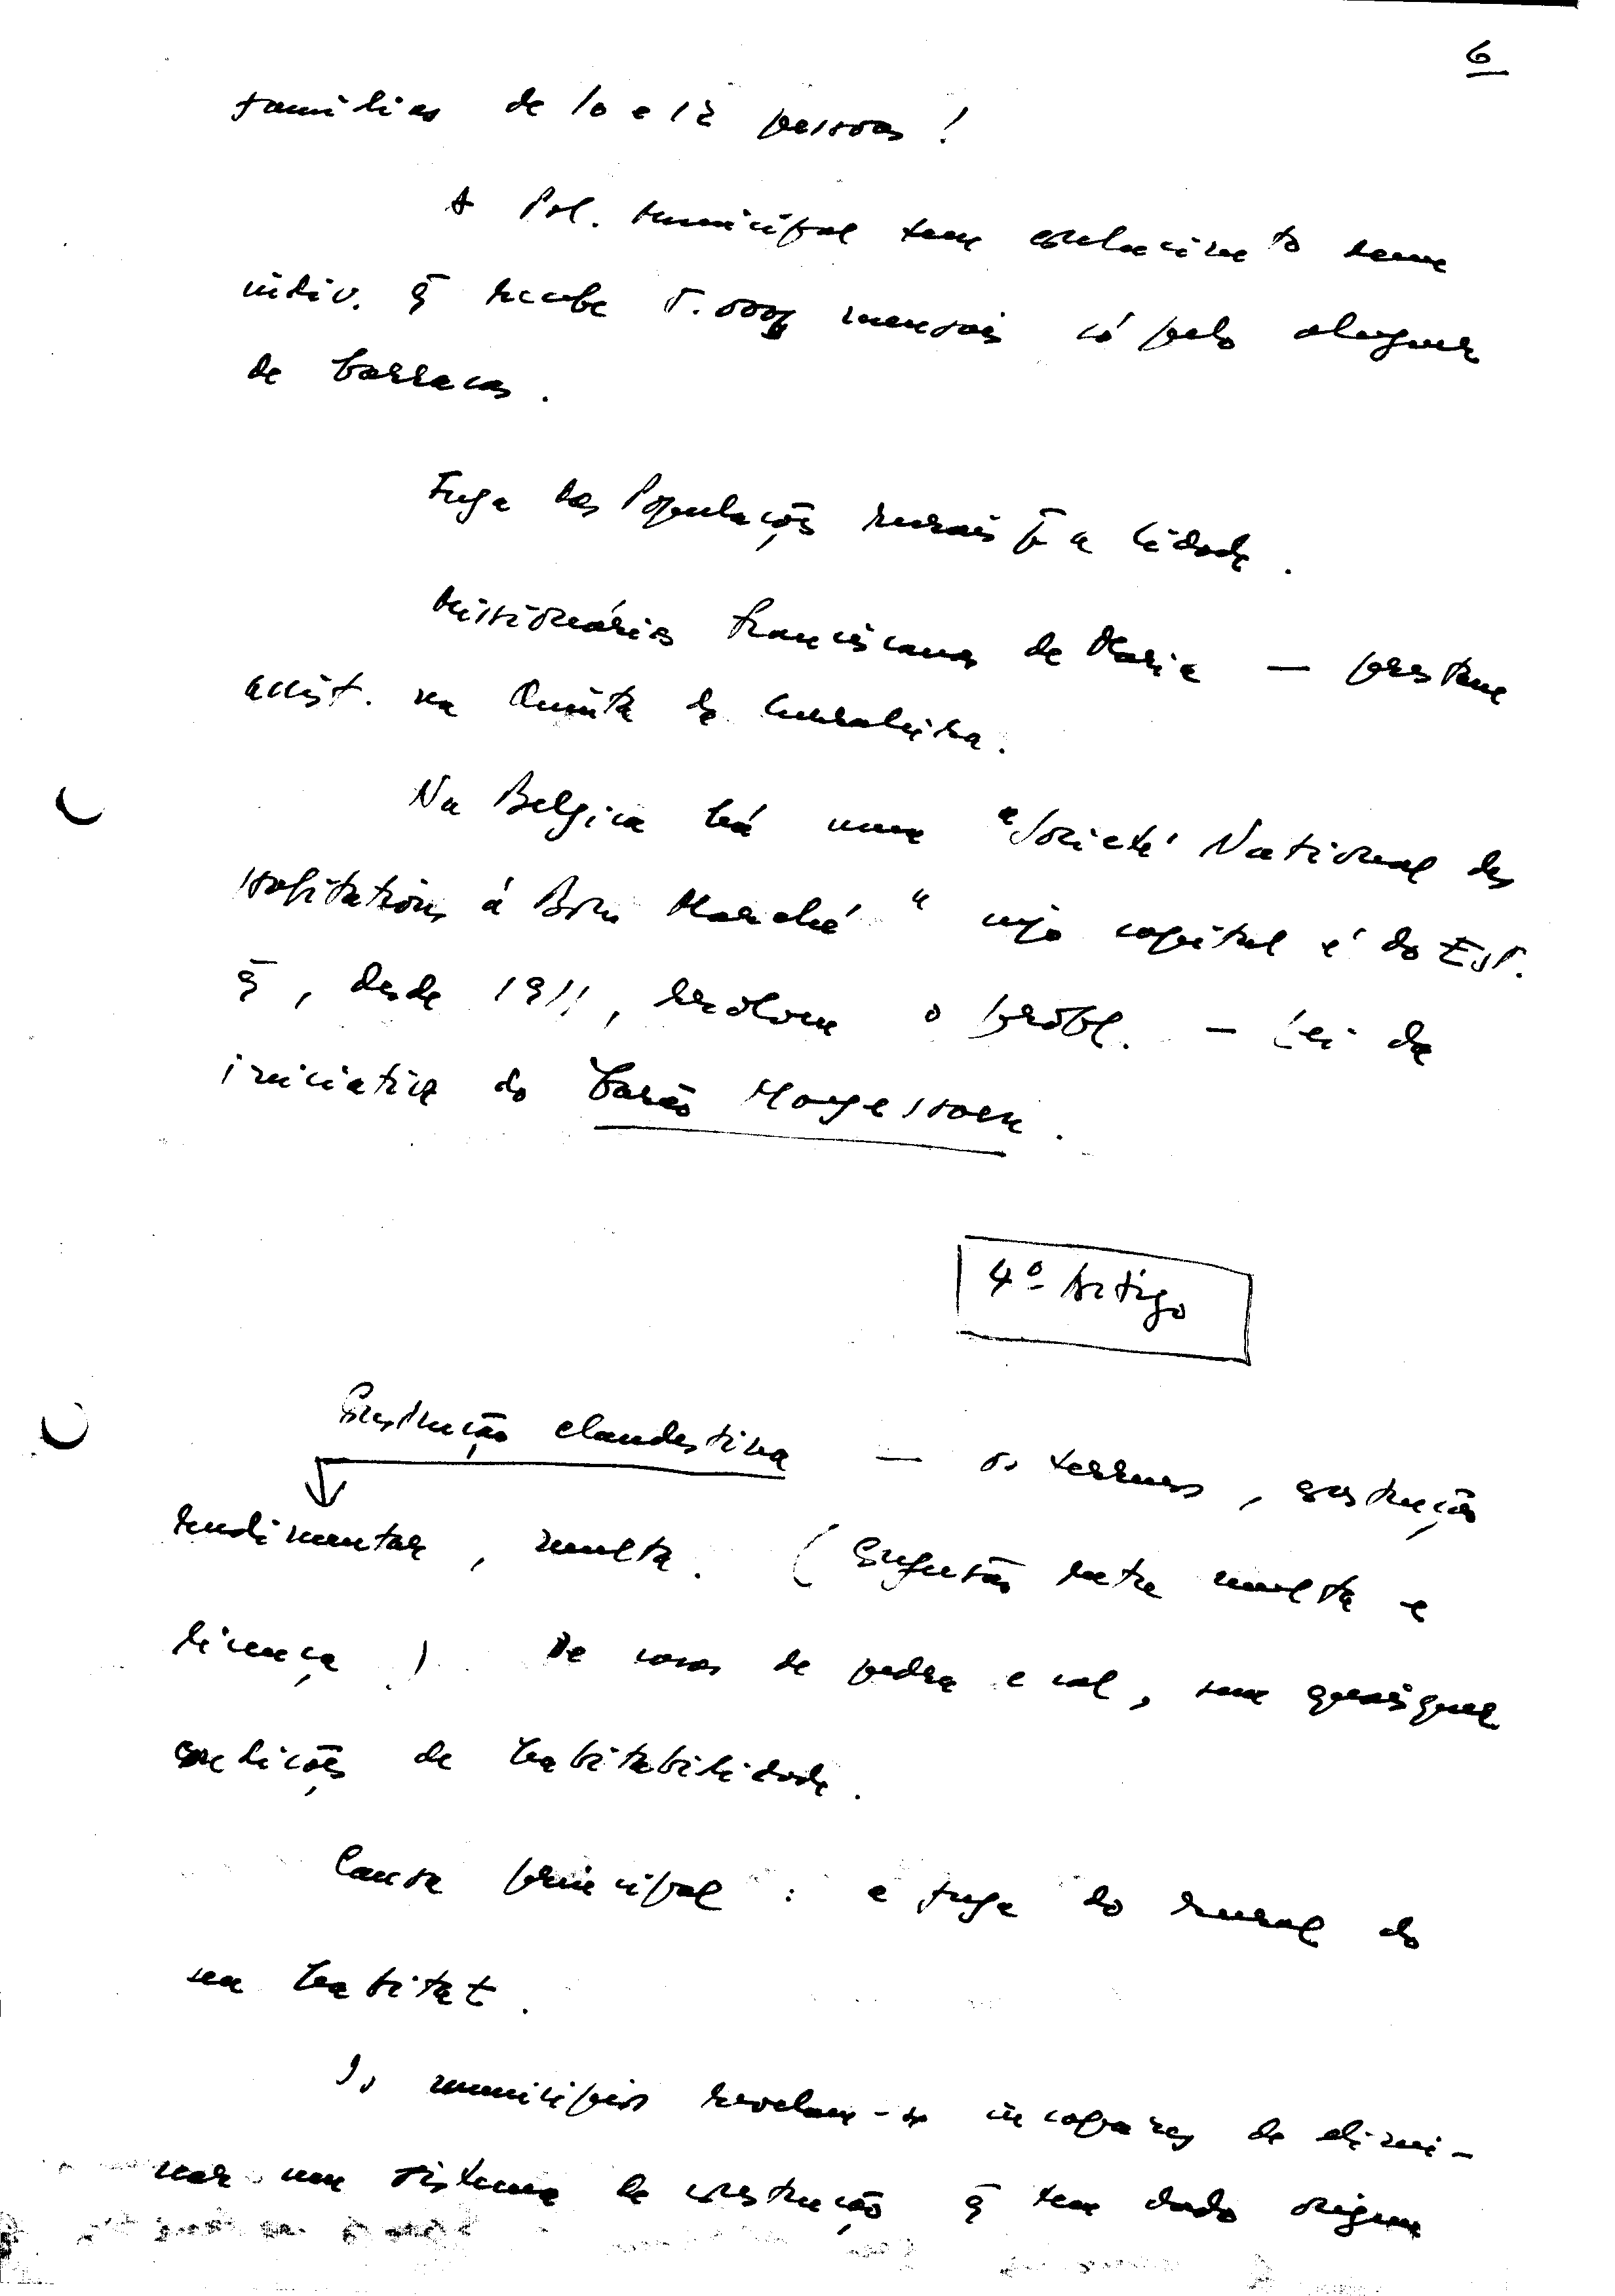 6
famílias de 10 e 12 pessoas!
A Pol. Municipal tem conhecimeto dum
indiv. q̄ recebe 5.000$ mensais só pelo aluguer
de barracas.
Fuga das Populações rurais p̄ a cidade.
Missionárias Franciscanas de Maria — prestam
assist. na Quinta da Curraleira.
Na Belgica há uma "Societé National des
Habitations á Bon Marché" cujo capital é do Est.
q̄, desde 1911, resolveu o probl. — Lei da
iniciativa do barão
4º Artigo
Construção clandestina — os terrenos, construção
rudimentar, multa. (Confusão entre multa e
licença). De casas de pedra e cal, sem quaisquer
condições de habitabilidade.
Causa principal: a fuga do rural do
seu habitat.
Os municípios revelam-se incapazes de elimi-
nar um sistema de construção q̄ tem dado origem